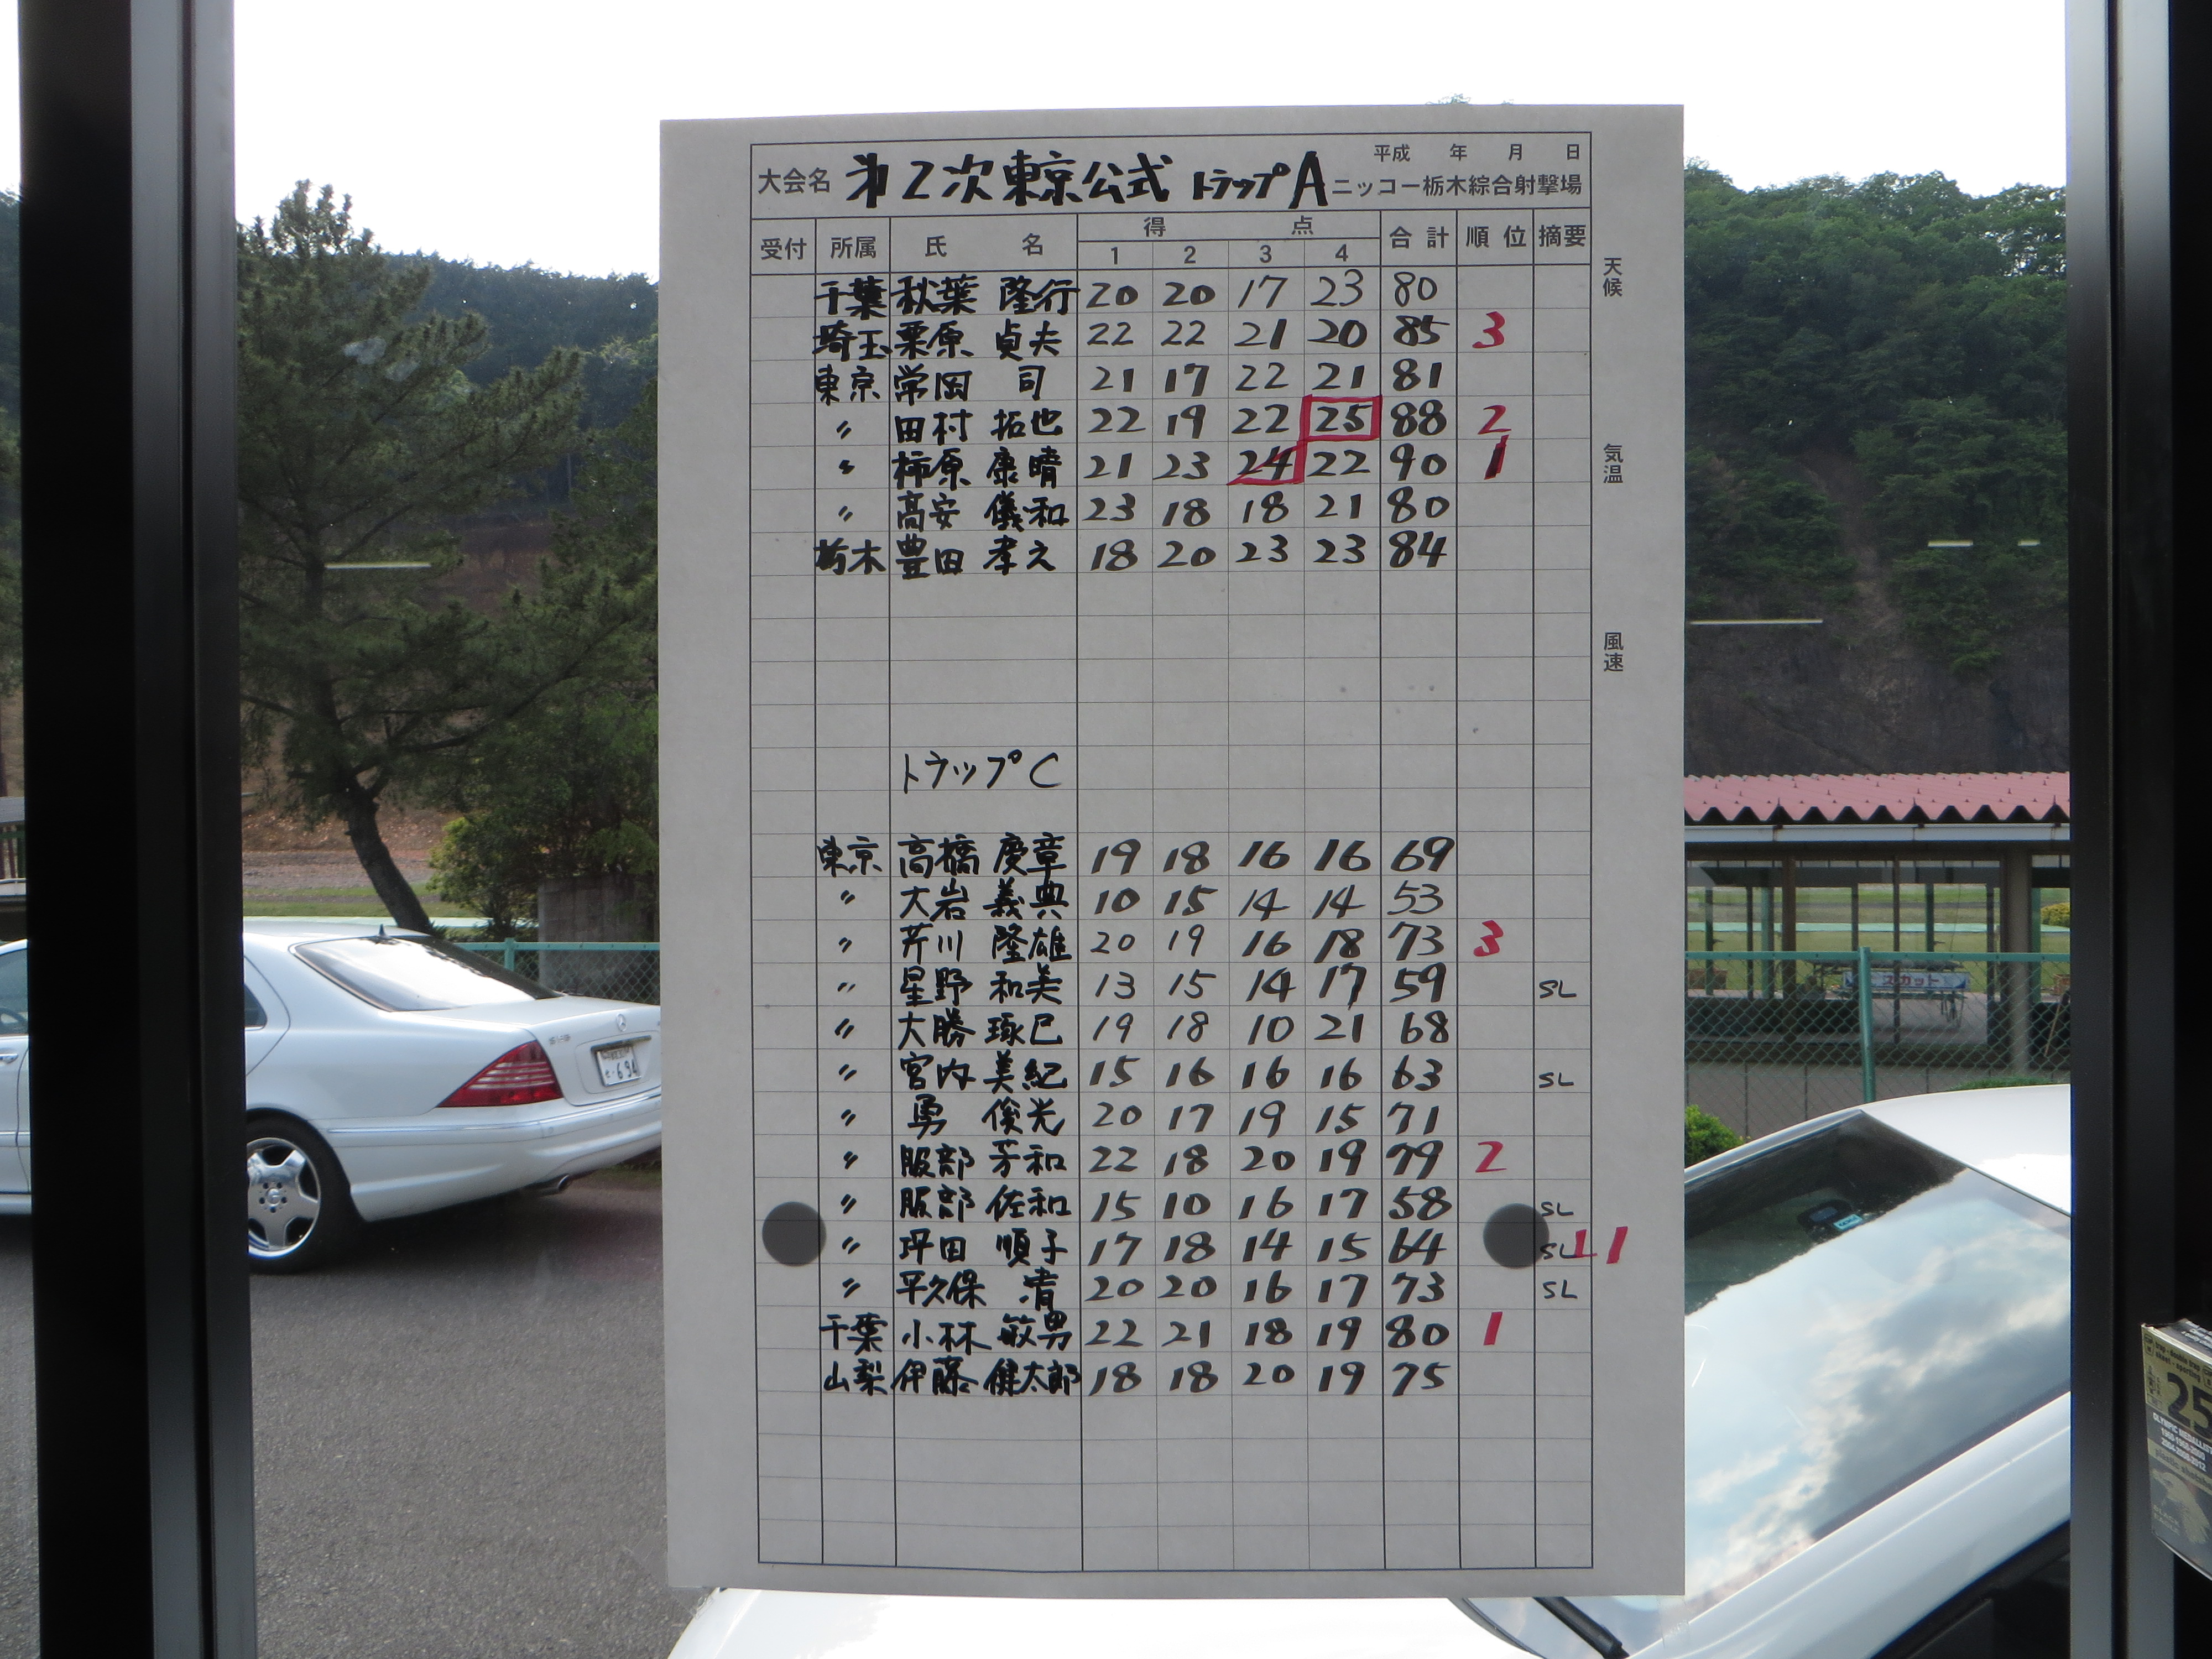 大会名 第2次東京公式 トラップA 平成 年 月 日
ニッコー栃木綜合射撃場
受付 所属 氏 名 得 点 合計 順位 摘要
1 2 3 4
千葉 秋葉 隆行 20 20 17 23 80
埼玉 栗原 貞夫 22 22 21 20 85 3
東京 常岡 司 21 17 22 21 81
〃 田村 拓也 22 19 22 25 88 2
〃 柿原 康晴 21 23 24 22 90 1
〃 高安 儀和 23 18 18 21 80
栃木 豊田 孝之 18 20 23 23 84
トラップC
東京 高橋 慶章 19 18 16 16 69
〃 大岩 義典 10 15 14 14 53
〃 芹川 隆雄 20 19 16 18 73 3
〃 星野 和美 13 15 14 17 59 SL
〃 大勝 琢巳 19 18 10 21 68
〃 宮内 美紀 15 16 16 16 63 SL
〃 勇 俊光 20 17 19 15 71
〃 服部 芳和 22 18 20 19 79 2
〃 服部 佐和 15 10 16 17 58 SL
〃 坪田 順子 17 18 14 15 64 SL L1
〃 平久保 清 20 20 16 17 73 SL
千葉 小林 敏男 22 21 18 19 80 1
山梨 伊藤 健太郎 18 18 20 19 75
天候
気温
風速
スカット
・694
25
OLYMPIC MEDALLIST